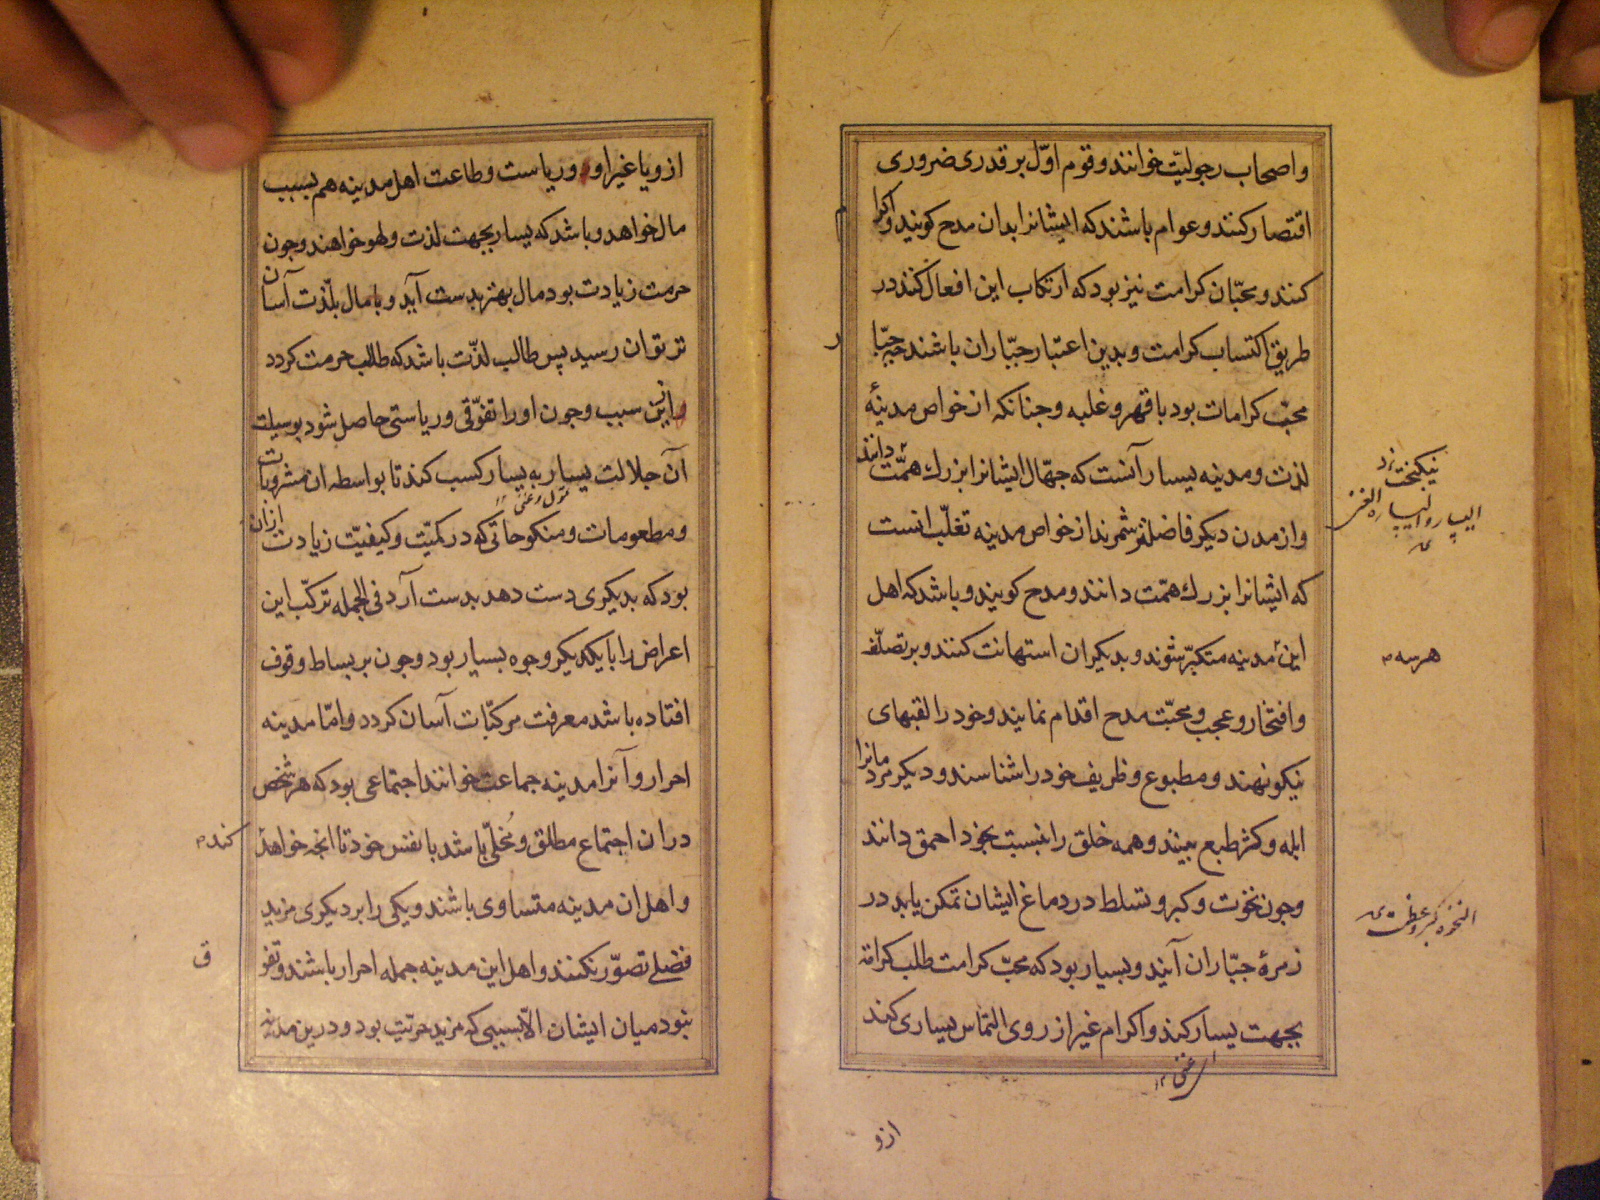 واصحاب رجولیّت خوانند و قوم اوّل بر قدری ضروری
اقتصار کنند و عوام باشند که ایشانرا بدان مدح کویند و اکرا
م
کنند و محبّان کرامت نیز بود که ارتکاب این افعال کنند در
طریق اکتساب کرامت و بدین اعتبار جبّاران باشند چه جبّا
ر
محبّ کرامات بود با قهر و غلبه و جنانکه از خواص مدینهٔ
لذت و مدینه یسار آنست که جهّال ایشانرا بزرك همّت دانند
نیکبخت
الیسار و الیساره الغنی
و از مدن دیکر فاضلتر شمرند از خواص مدینه تغلّب انست
که ایشانرا بزرك همّت دانند و مدح کویند و باشد که اهل
این مدینه متکبّر شوند و بدیکران استهانت کنند و بر تصلّف
هر سه
و افتخار و عجب و محبّت مدح اقدام نمایند و خود را لقبهای
نیکو نهند و مطبوع و ظریف خود را شناسند و دیکر مردمانرا
ابله و کژ طبع بینند و همه خلق را نسبت بخود احمق دانند
وجون نخوت و کبر و تسلط در دماغ ایشان تمکن یابد در
النخوه کبر و عظمت
زمرهٔ جبّاران آیند و بسیار بود که محبّ کرامت طلب کرامة
بجهت یسار کند و اکرام غیر از روی التماس یساری کند
ازو
ازو یا غیر او و ریاست و طاعت اهل مدینه هم بسبب
مال خواهد و باشد که یسار بجهت لذت و لهو خواهند و جون
حرمت زیادت بود مال بهتر بدست آید و با مال بلذّت آسان
تر توان رسید پس طالب لذّت باشد که طالب حرمت کردد
سبب و جون او را تفوّقی و ریاستی حاصل شود بوسیلت
آن جلالت یسار به یسار کسب کند تا بواسطه ان مشروبات
و مطعومات و منکوحاتی که در کمیّت و کیفیّت زیادت ازان
بود که بدیکری دست دهد بدست آرد فی الجمله ترکّب این
اعراض را با یکدیکر وجوه بسیار بود و جون بر بساط وقوف
افتاده باشد معرفت مرکبّات آسان کردد و امّا مدینه
احرار و آنرا مدینه جماعت خوانند اجتماعی بود که هر شخص
دران اجتماع مطلق و مخلّی باشد با نفس خود تا انچه خواهد
کند
و اهل ان مدینه متساوی باشند و یکی را بر دیکری مزید
فضلے تصوّر نکنند و اهل این مدینه جمله احرار باشند و تفو
ق
نبود میان ایشان الّا بسببی که مزید حریّت بود و درین مدینه